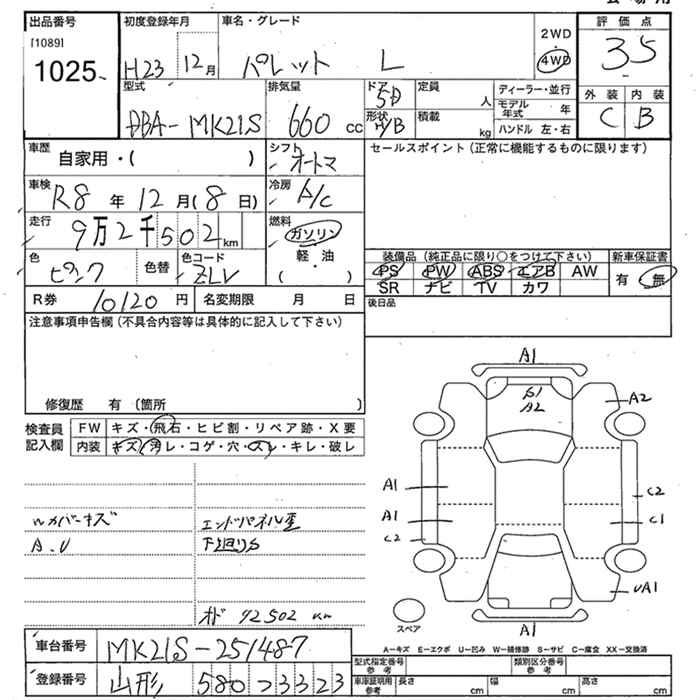 出品番号
[1089]
1025
初度登録年月
H23 12月
車名・グレード
パレット L
2WD
4WD
評価点
35
外装 内装
C B
型式
DBA-MK21S
排気量
660 cc
ドア
5D
形状
H/B
定員
人
積載
kg
ディーラー・並行
モデル年式 年
ハンドル 左・右
車歴
自家用・( )
シフト
オートマ
セールスポイント(正常に機能するものに限ります)
車検
R8 年 12 月 (8 日)
冷房
A/C
走行
9万2千502 km
燃料
ガソリン
軽・油
( )
色
ピンク
色替
色コード
ZLV
装備品(純正品に限り○をつけて下さい)
PS PW ABS エアB AW
SR ナビ TV カワ
新車保証書
有 無
R券 10120 円
名変期限 月 日
後日品
注意事項申告欄(不具合内容等は具体的に記入して下さい)
修復歴 有(箇所 )
検査員記入欄
FW キズ・飛石・ヒビ割・リペア跡・X要
内装 キズ・汚レ・コゲ・穴・スレ・キレ・破レ
Wカバーキズ
A.U
エンドパネル歪
下廻りS
オド 92502 km
A1
A1
A2
A2
A1
A1
C2
C2
C1
UA1
A1
スペア
A−キズ E−エクボ U−凹み W−補修跡 S−サビ C−腐食 XX−交換済
車台番号
MK21S-251487
登録番号
山形 580 つ 3323
型式指定番号
参考
類別区分番号
参考
車庫証明用
参考
長さ cm
幅 cm
高さ cm